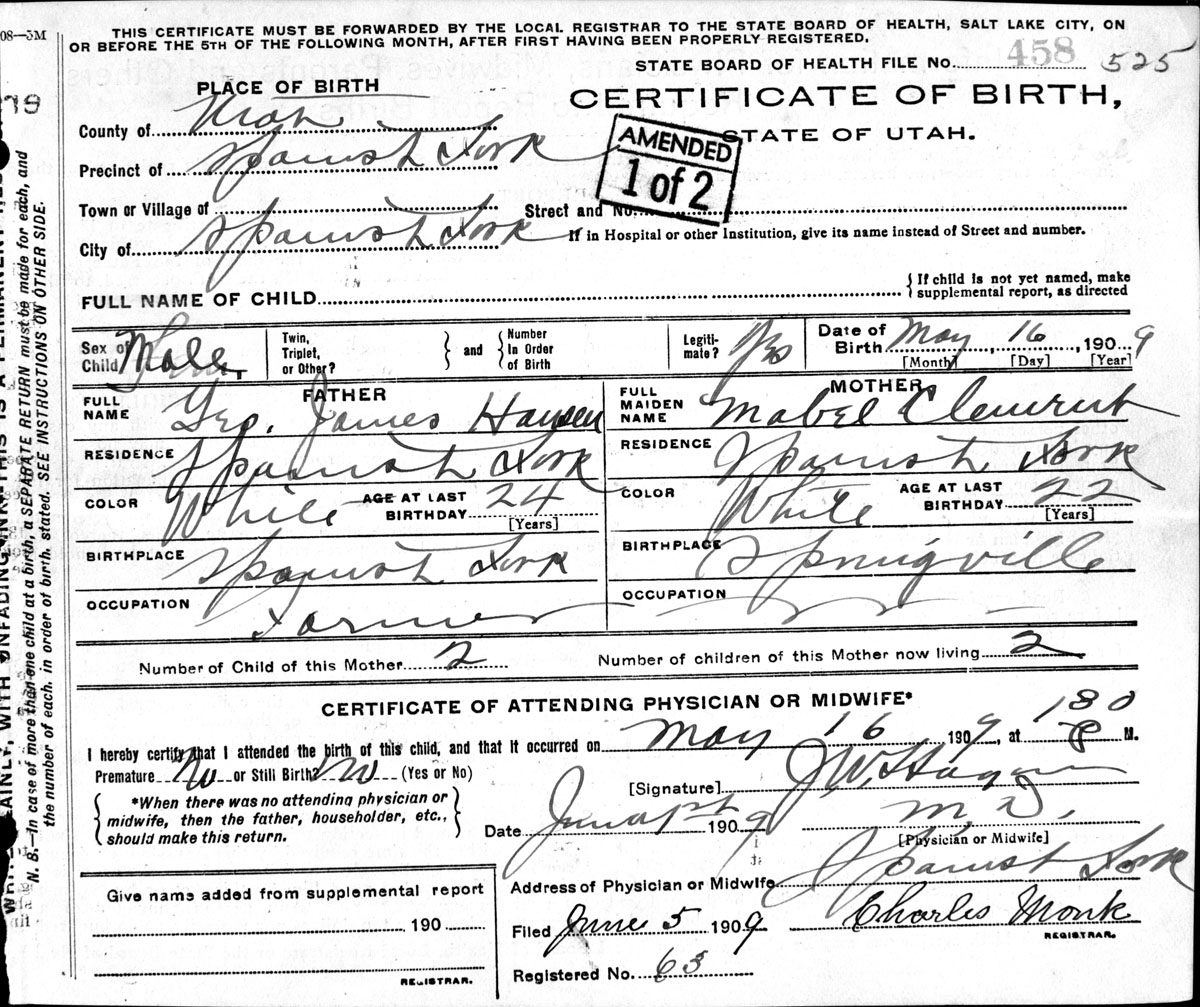 08—3M
THIS CERTIFICATE MUST BE FORWARDED BY THE LOCAL REGISTRAR TO THE STATE BOARD OF HEALTH, SALT LAKE CITY, ON
OR BEFORE THE 5TH OF THE FOLLOWING MONTH, AFTER FIRST HAVING BEEN PROPERLY REGISTERED.
STATE BOARD OF HEALTH FILE NO. 458 525
PLACE OF BIRTH
CERTIFICATE OF BIRTH,
STATE OF UTAH.
AMENDED
1 of 2
County of Utah
Precinct of Spanish Fork
Town or Village of
Street and No.
City of Spanish Fork
If in Hospital or other Institution, give its name instead of Street and number.
FULL NAME OF CHILD
{ If child is not yet named, make
supplemental report, as directed
Sex of Child Male
Twin, Triplet, or Other? } and { Number In Order of Birth
Legiti-mate? Yes
Date of Birth May, 16, 1909
[Month] [Day] [Year]
FATHER
FULL NAME Geo. James Hansen
RESIDENCE Spanish Fork
COLOR White AGE AT LAST BIRTHDAY 24
[Years]
BIRTHPLACE Spanish Fork
OCCUPATION Farmer
MOTHER
FULL MAIDEN NAME Mabel Clement
RESIDENCE Spanish Fork
COLOR White AGE AT LAST BIRTHDAY 22
[Years]
BIRTHPLACE Springville
OCCUPATION
Number of Child of this Mother 2 Number of children of this Mother now living 2
CERTIFICATE OF ATTENDING PHYSICIAN OR MIDWIFE*
I hereby certify that I attended the birth of this child, and that it occurred on May 16 1909, at 130 P M.
Premature No or Still Birth? No (Yes or No)
{ *When there was no attending physician or
midwife, then the father, householder, etc.,
should make this return. }
[Signature] J W Hagan
M. D.
[Physician or Midwife]
Date June 1st 1909
Address of Physician or Midwife Spanish Fork
Give name added from supplemental report
190
REGISTRAR.
Filed June 5 1909 Charles Monk
REGISTRAR.
Registered No. 63
N. B.—In case of more than one child at a birth, a SEPARATE RETURN must be made for each, and
the number of each, in order of birth, stated. SEE INSTRUCTIONS ON OTHER SIDE.